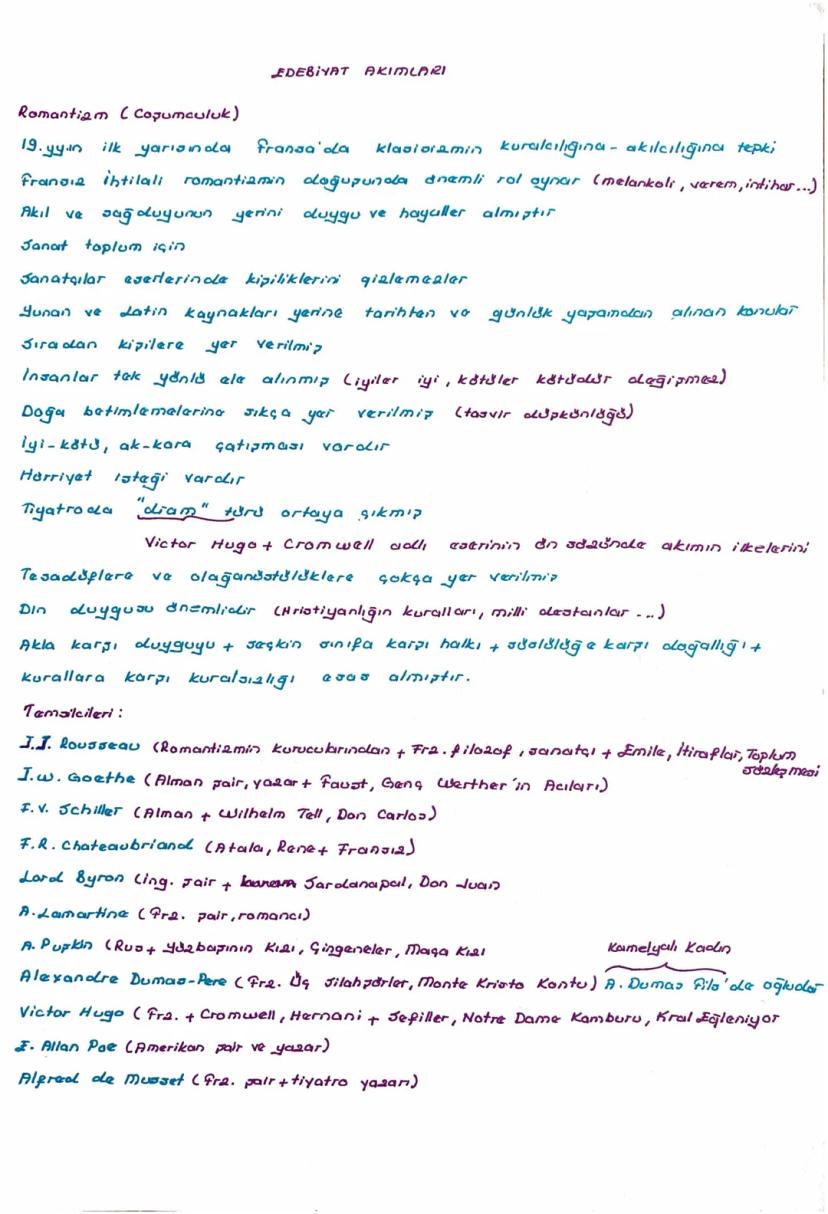 EDEBİYAT AKIMLARI
Romantizm (Coşumculuk)
19.yy.ın ilk yarısında Fransa'da klasisizmin kuralcılığına - akılcılığına tepki
Fransız ihtilali romantizmin doğuşunda önemli rol oynar (melankoli, verem, intihar...)
Akıl ve sağduyunun yerini duygu ve hayaller almıştır
Sanat toplum için
Sanatçılar eserlerinde kişiliklerini gizlemezler
Yunan ve Latin kaynakları yerine tarihten ve günlük yaşamdan alınan konular
Sıradan kişilere yer verilmiş
İnsanlar tek yönlü ele alınmış (iyiler iyi, kötüler kötüdür değişmez)
Doğa betimlemelerine sıkça yer verilmiş (tasvir düşkünlüğü)
İyi-kötü, ak-kara çatışması vardır
Hürriyet isteği vardır
Tiyatroda "dram" türü ortaya çıkmış
Victor Hugo + Cromwell adlı eserinin ön sözünde akımın ilkelerini
Tesadüflere ve olağanüstülüklere çokça yer verilmiş
Din duygusu önemlidir (Hristiyanlığın kuralları, milli destanlar ...)
Akla karşı duyguyu + seçkin sınıfa karşı halkı + süslülüğe karşı doğallığı +
kurallara karşı kuralsızlığı esas almıştır.
Temsilcileri:
J.J. Rousseau (Romantizmin kurucularından + Frz. filozof, sanatçı + Emile, İtiraflar, Toplum
sözleşmesi
J.W. Goethe (Alman şair, yazar + Faust, Genç Werther'in Acıları)
F.V. Schiller (Alman + Wilhelm Tell, Don Carlos)
F.R. Chateaubriand (Atala, Rene + Fransız)
Lord Byron (ing. şair + Sardanapal, Don Juan
A. Lamartine (Frz. şair, romancı)
A. Puşkin (Rus + Yüzbaşının Kızı, Çingeneler, Maça Kızı
Kamelyalı Kadın
Alexandre Dumas-Pere (Frz. Üç Silahşörler, Monte Kristo Kontu) A. Dumas Fils'de oğludur
Victor Hugo (Frz. + Cromwell, Hernani + Sefiller, Notre Dame Kamburu, Kral Eğleniyor
E. Allan Poe (Amerikan şair ve yazar)
Alfred de Musset (Frz. şair + tiyatro yazarı)